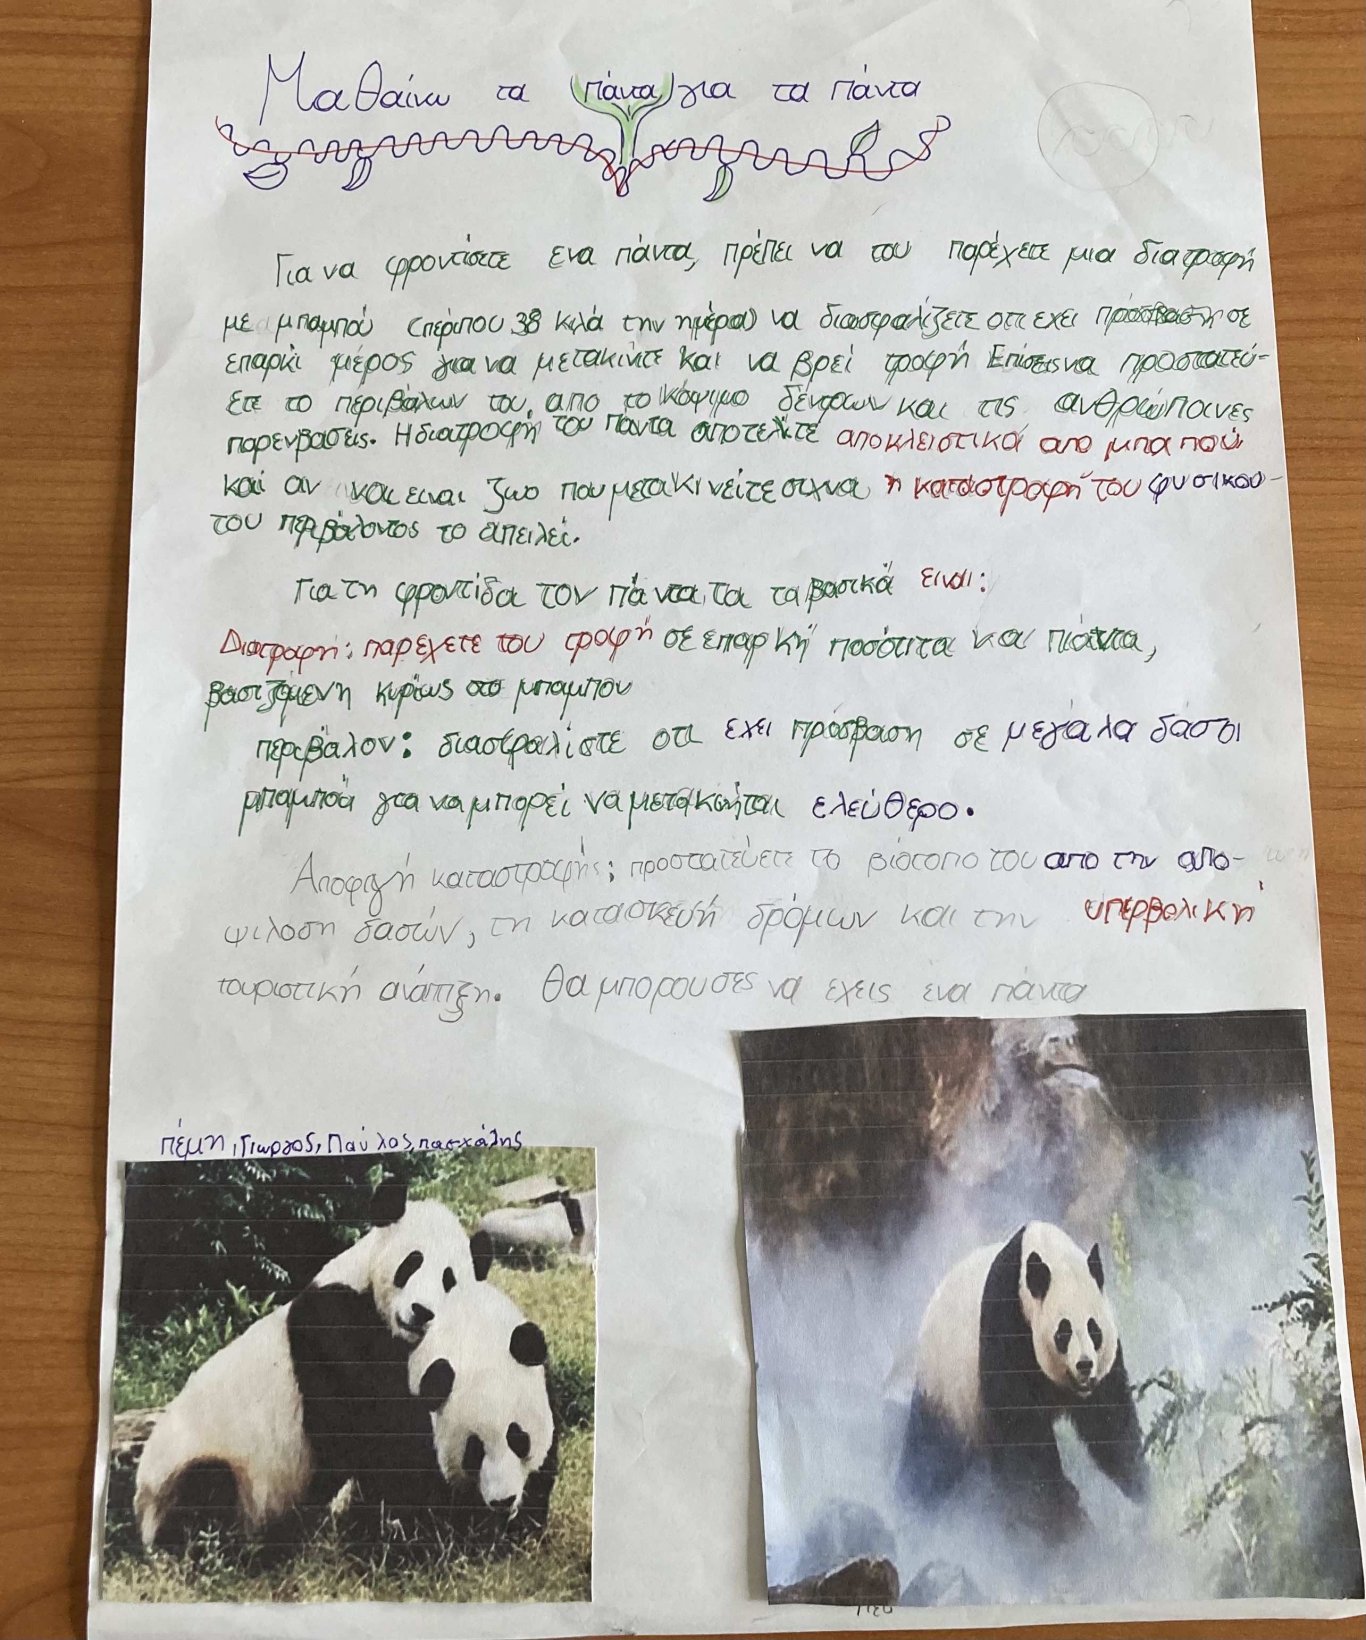 Μαθαίνω τα πάντα για τα πάντα
Για να φροντίσετε ενα πάντα, πρέπει να του παρέχετε μια διατροφή
με μπαμπού (περίπου 38 κιλά την ημέρα) να διασφαλίζετε οτι εχει πρόσβαση σε
επαρκί μέρος για να μετακινίτε και να βρεί τροφή Επίσεις να προστατεύ-
ετε το περιβάλων του, απο το κόψιμο δέντρων και τις ανθρώπινες
παρενβασεις. Η διατροφή του πάντα αποτελίτε αποκλειστικά απο μπαπού
και αν και ειναι ζωο που μετακινείτε σιχνα η καταστροφή του φυσικου-
του περιβάλοντος το απειλεί.
Για τη φροντίδα τον πάντα, τα βασικά ειναι:
Διατροφή: παρέχετε του τροφή σε επαρκή ποσότιτα και πιάντα,
βασιζόμενη κυρίως στο μπαμπου
περιβάλον: διασφαλίστε οτι εχει πρόσβαση σε μεγάλα δάσοι
μπαμπού για να μπορεί να μετακινήται ελεύθερο.
Αποφιγή καταστροφής: προστατεύετε το βιότοπο του απο την απο-
ψιλοση δασών, τη κατασκευή δρόμων και την υπερβολική
τουριστική ανάπιξη. Θα μπορουσες να εχεις ενα πάντα
πέμη, Γιωργος, Παύλος, πασχάλης